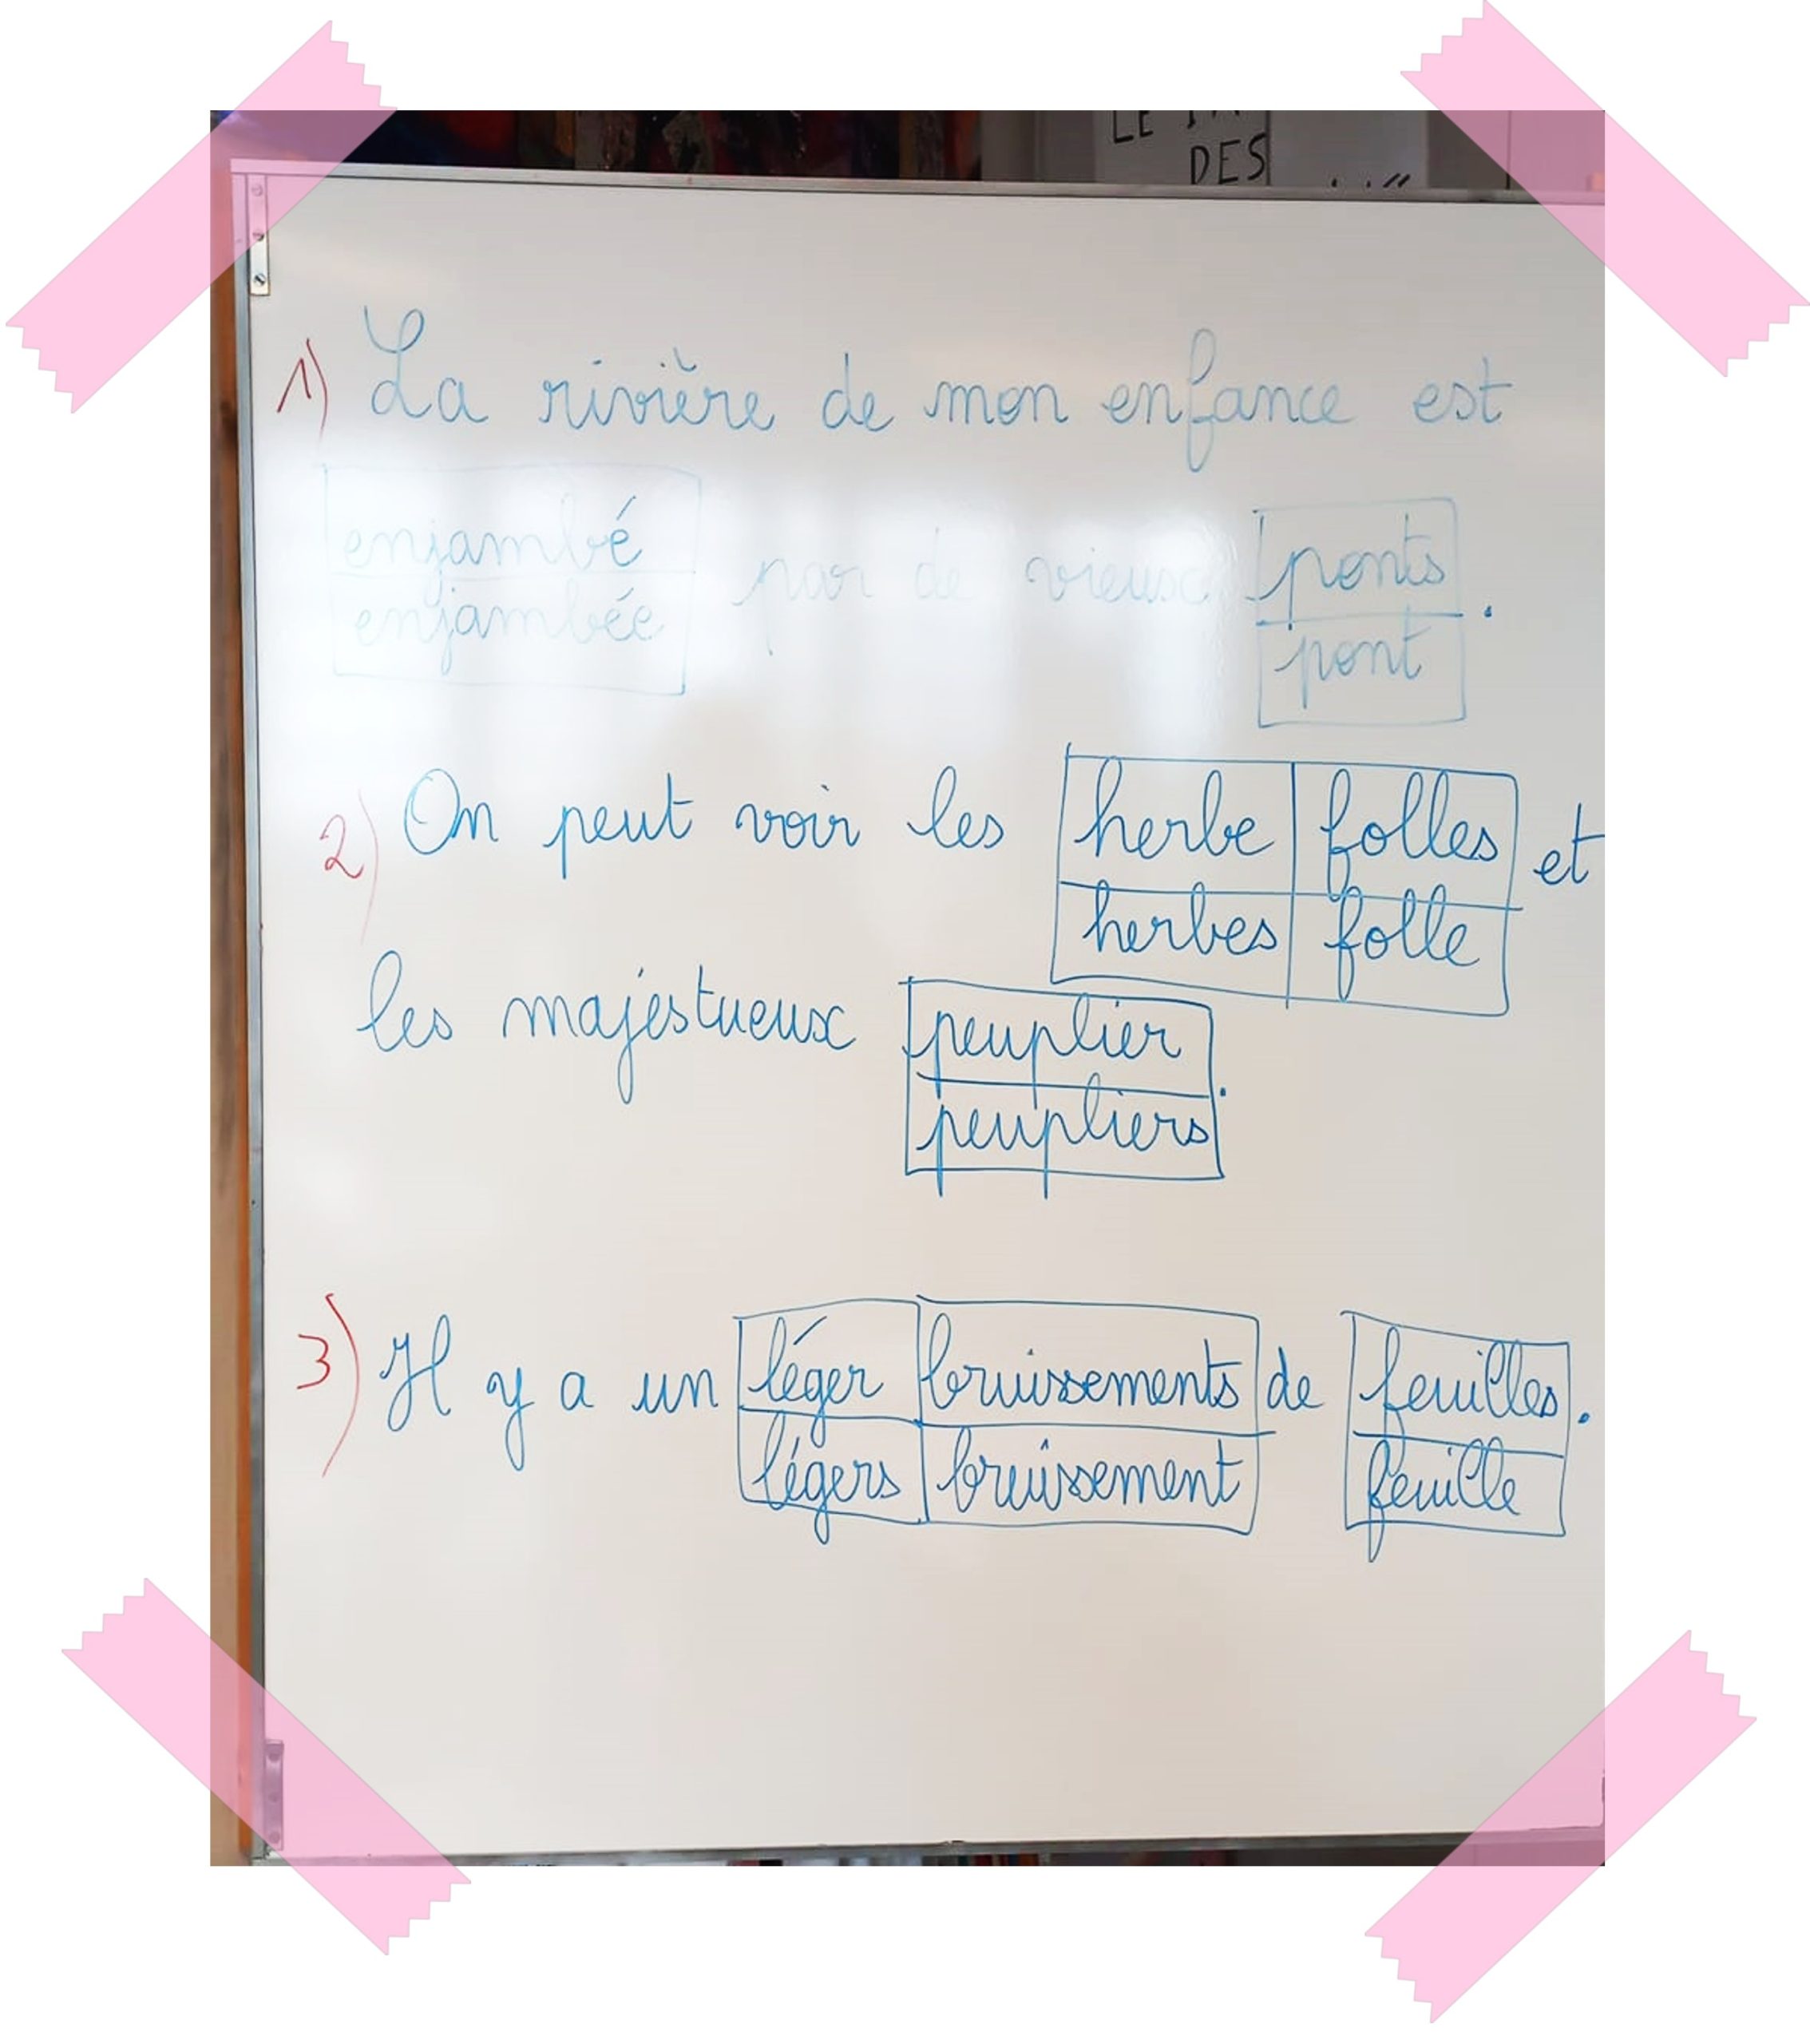 DES
1) La rivière de mon enfance est
enjambé par de vieux ponts.
enjambée pont
2) On peut voir les herbe folles et
herbes folle
les majestueux peuplier.
peupliers
3) Il y a un léger bruissements de feuilles.
légers bruissement feuille